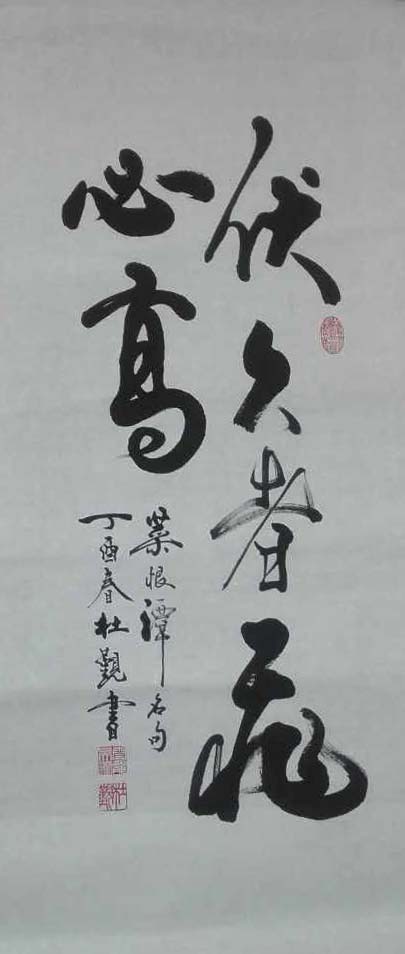 伏久者飛
必高
菜根譚名句
丁酉春杜觀書